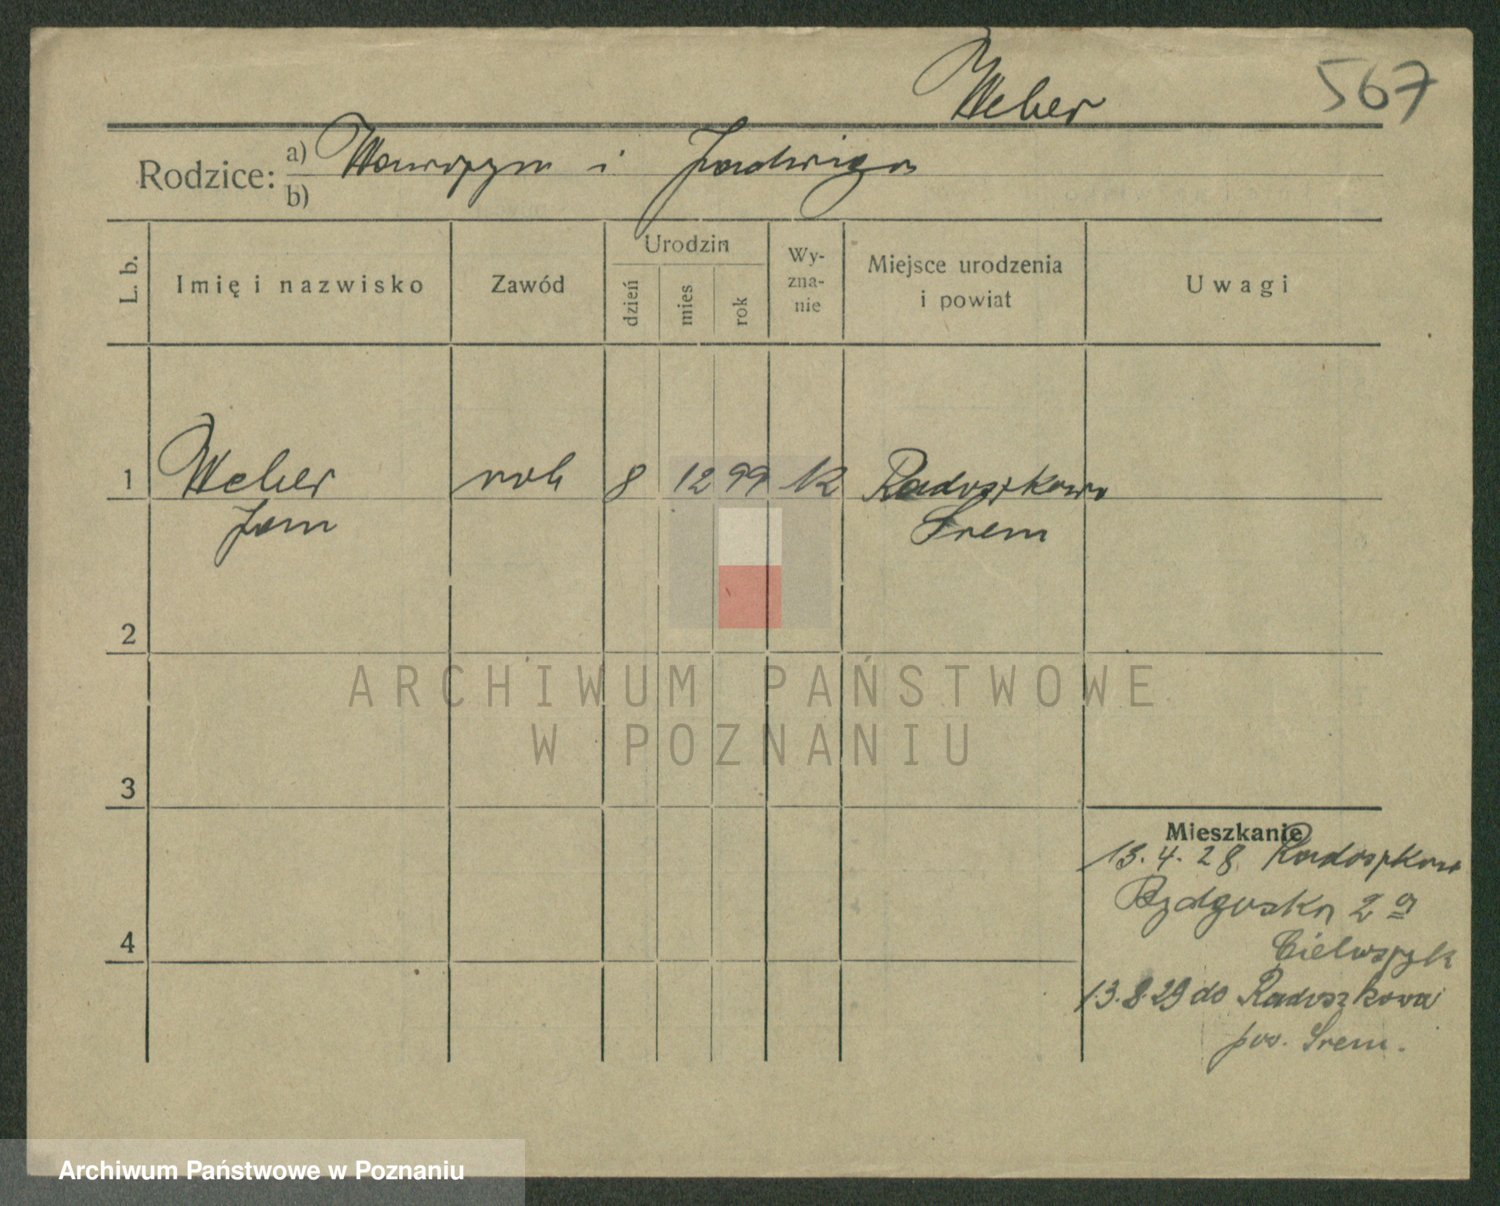 Weber 567
Rodzice: a) Wawrzyn i Jadwiga
b)
L. b. Imię i nazwisko Zawód Urodzin Wy-
zna-
nie Miejsce urodzenia
i powiat Uwagi
dzień mies rok
1 Weber rob 8 12 99 K Radoszkowo
Jan Śrem
2
ARCHIWUM PAŃSTWOWE
W POZNANIU
3
Mieszkanie
13.4.28 Radoszkowo
Bydgoska 2a
4
13.8.29 do Radoszkowa
pow. Śrem.
Archiwum Państwowe w Poznaniu